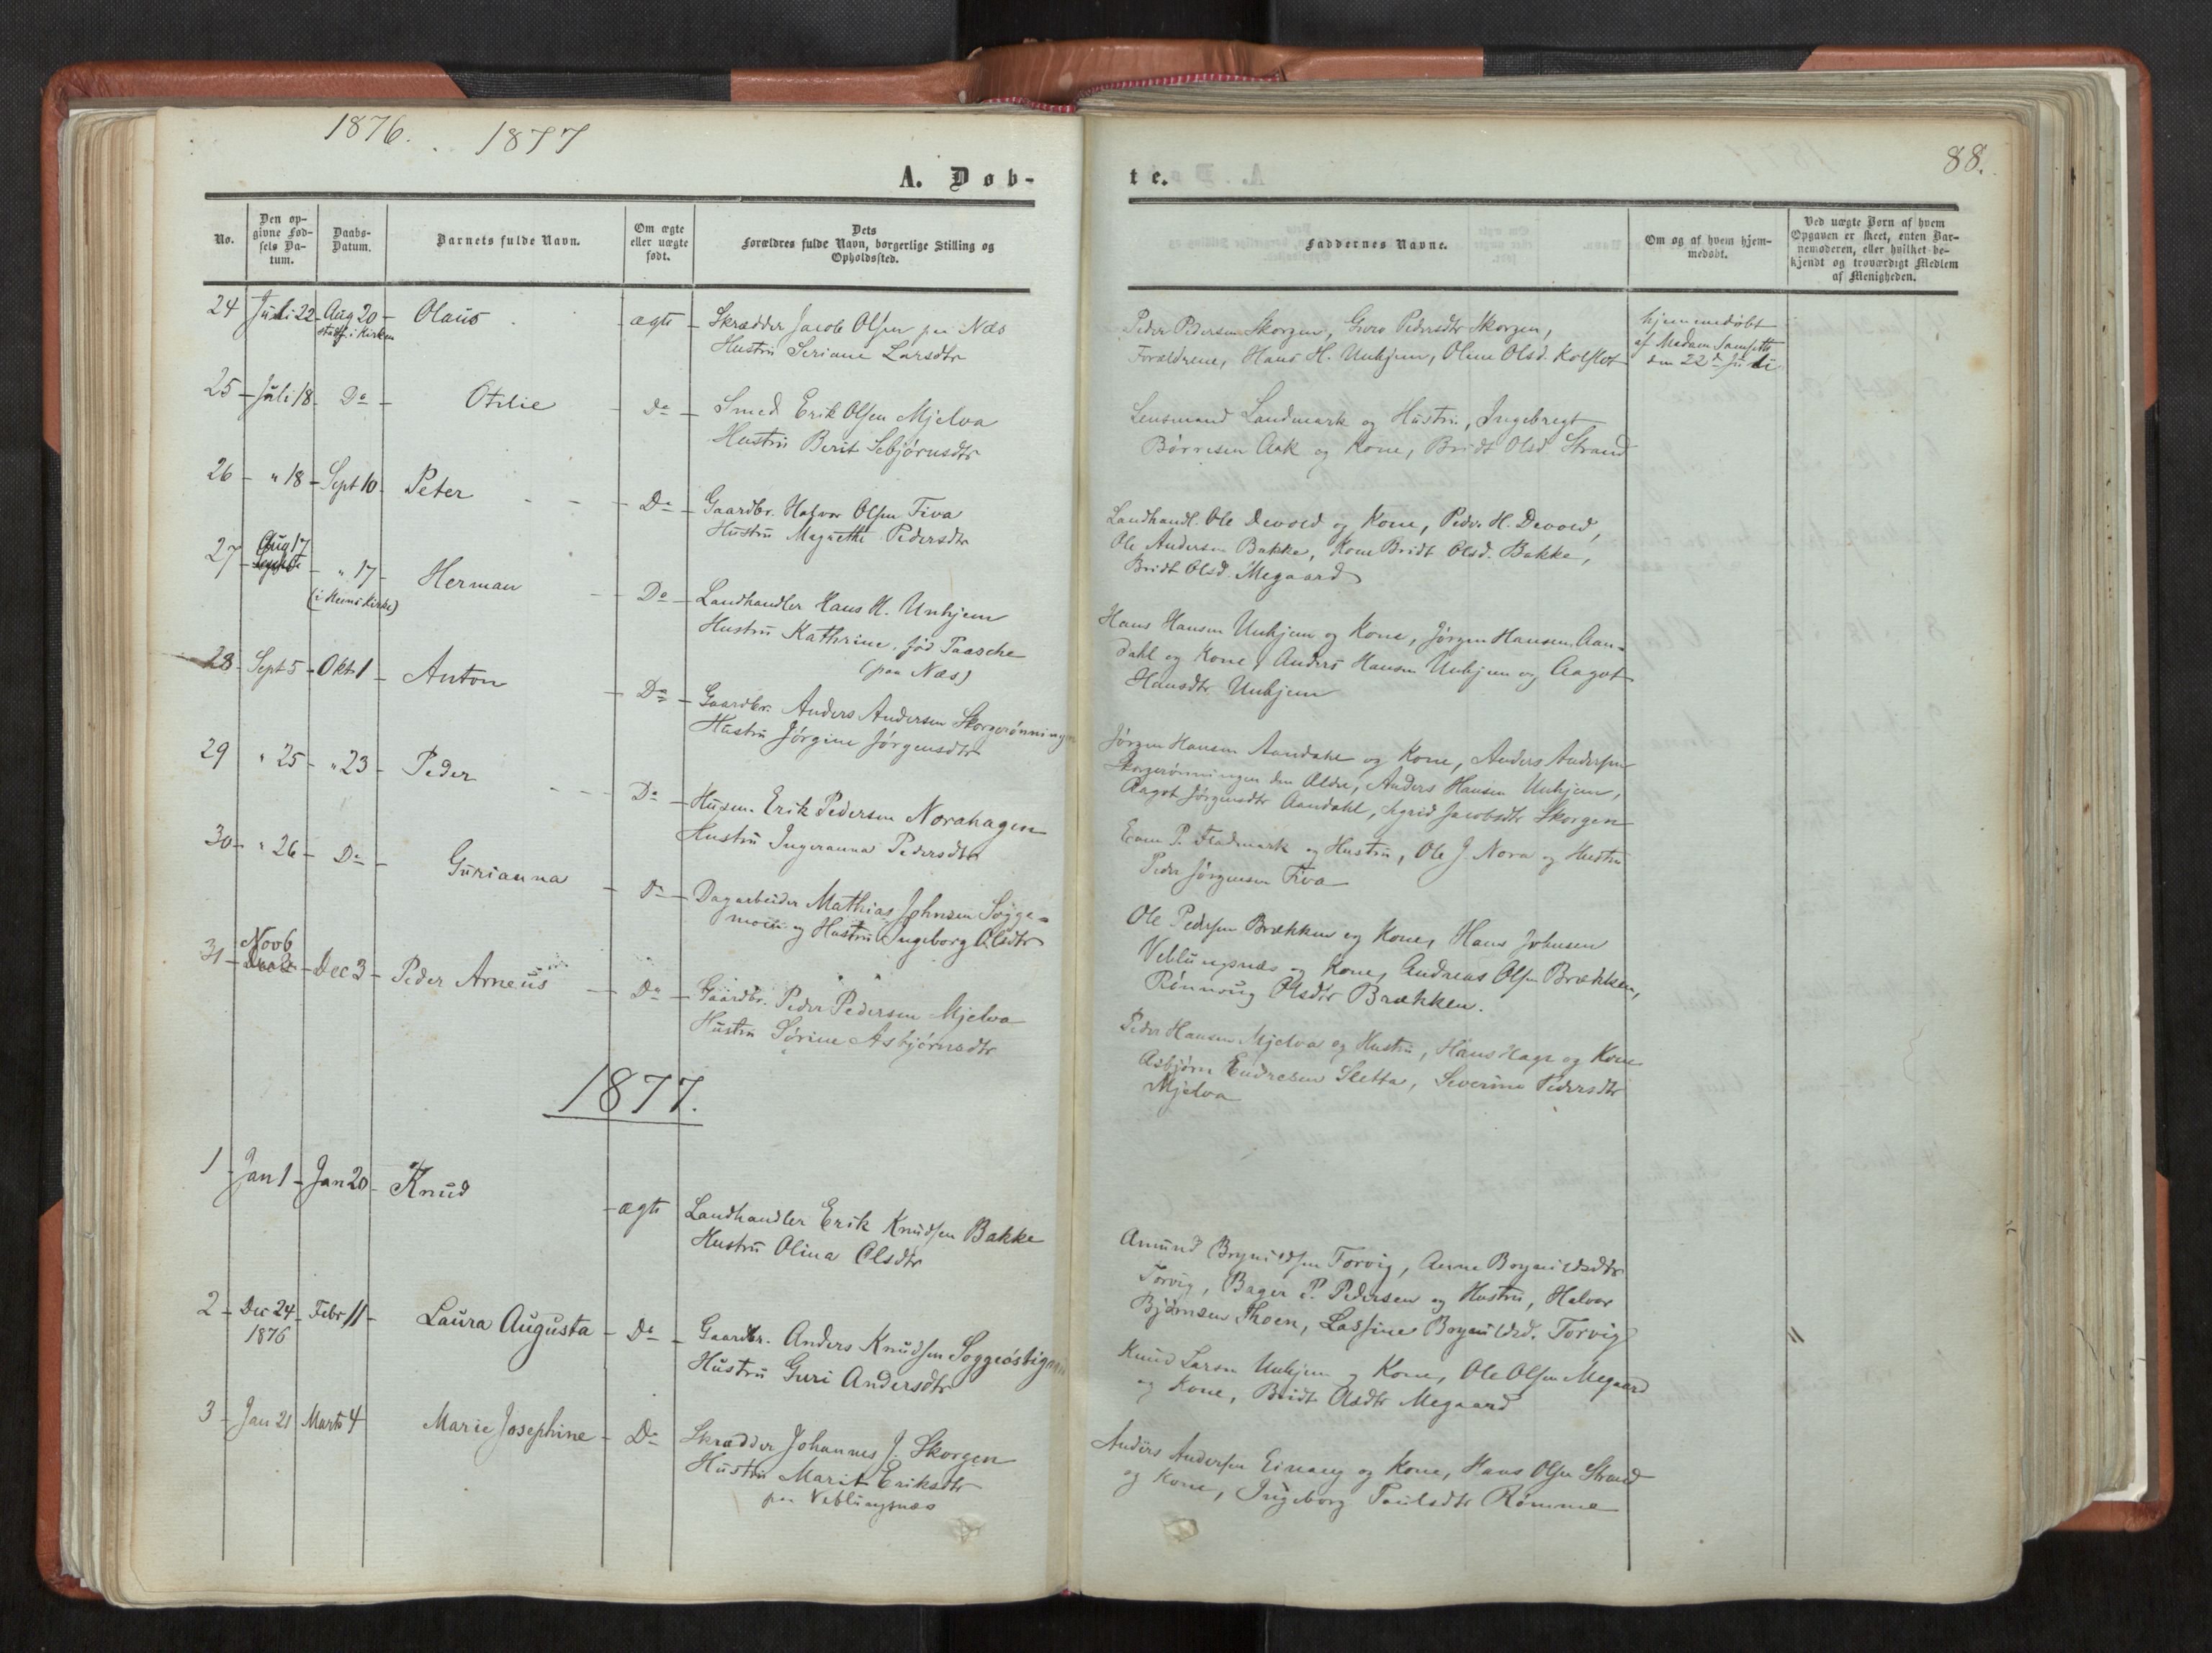 1876. 1877
88.
A. Døb-
te.
No.
Den op-
givne Fød-
sels Da-
tum.
Daabs-
Datum.
Barnets fulde Navn.
Om ægte
eller uægte
født.
Dets
Forældres fulde Navn, borgerlige Stilling og
Opholdssted.
Faddernes Navne.
Om og af hvem hjem-
medøbt.
Ved uægte Børn af hvem
Opgaven er skeet, enten Bar-
nemoderen, eller hvilket be-
kjendt og troværdigt Medlem
af Menigheden.
24 Juli 22 - Aug 20 - Olaus - ægte - Skrædder Jacob Olsen paa Næs
stadf. i Kirken
Hustru Seriane Larsdtr
Peder Pedersen Skorgen, Guro Pedersdtr Skorgen,
Forældrene, Hans H. Unhjem, Oline Olsd. Kolflot
hjemmedøbt
af Madam
den 22de Juli
25 - Juli 18 - Do - Otilie - do - Smed Erik Olsen Mjelva
Hustru Berit Sebjørnsdtr
Lensmand Landmark og Hustru, Ingebregt
Børresen Aak og Kone, Bridt Olsd. Strand
26 - " 18 - Sept 10 - Peter - Do - Gaardbr. Halvor Olsen Fiva
Hustru Magrethe Pedersdtr
Landhandl. Ole Devold og Kone, Peder H. Devold,
Ole Andersen Bakke, Kone Bridt Olsd. Bakke,
Bridt Olsd. Megaard
27 - Aug 17 - " 17 - Herman - Do - Landhandler Hans H. Unhjem
(i Hens Kirke)
Hustru Kathrine, fød Paasche
(paa Næs)
Hans Hansen Unhjem og Kone, Jørgen Hansen Aan-
dahl og Kone, Anders Hansen Unhjem og Aagot
Hansdtr Unhjem
28 - Sept 5 - Okt 1 - Anton - Do - Gaardbr. Anders Andersen Skorgerønningen
Hustru Jørgine Jørgensdtr
Jørgen Hansen Aandahl og Kone, Anders Andersen
Skorgerønningen den Ældre, Anders Hansen Unhjem,
Aagot Jørgensdtr Aandahl, Sigrid Jacobsdtr Skorgen
29 " 25 - " 23 - Peder - Do - Husm. Erik Pedersen Norahagen
Hustru Ingeranna Pedersdtr
Even P. Fladmark og Hustru, Ole J. Nora og Hustru
Peder Jørgensen Fiva
30 - " 26 - Do - Gurianna - Do - Dagarbeider Mathias Johnsen Sogge-
moen og Hustru Ingeborg Olsdtr
Ole Pedersen Brækken og Kone, Hans Johnsen
Veblungsnæs og Kone, Andreas Olsen Brækken,
Rønnaug Olsdtr Brækken.
31 - Nov 6 - Dec 3 - Peder Arneus - Do - Gaardbr. Peder Pedersen Mjelva
Hustru Sørine Asbjørnsdtr
Peder Hansen Mjelva og Hustru, Hans Hage og Kone
Asbjørn Endresen Sletta, Severine Pedersdtr
Mjelva
1877.
1 - Jan 1 - Jan 20 - Knud - ægte Landhandler Erik Knudsen Bakke
Hustru Olina Olsdtr
Amund Brynildsen Torvig, Anne Brynildsdtr
Torvig, Bager P. Pedersen og Hustru, Halvor
Bjørnsen Thoen, Lassine Brynildsd. Torvig
2 - Dec 24 - Febr 11 - Laura Augusta - Do - Gaardbr. Anders Knudsen Soggeøstigaard
1876
Hustru Guri Andersdtr
Knud Larsen Unhjem og Kone, Ole Olsen Megaard
og Kone, Bridt Olsdtr Megaard
3 - Jan 21 Marts 4 Marie Josephine - Do - Skrædder Johannes J. Skorgen
Hustru Marit Eriksdtr
paa Veblungsnæs
Anders Andersen Einang og Kone, Hans Olsen Strand
og Kone, Ingeborg Paulsdtr Rømme